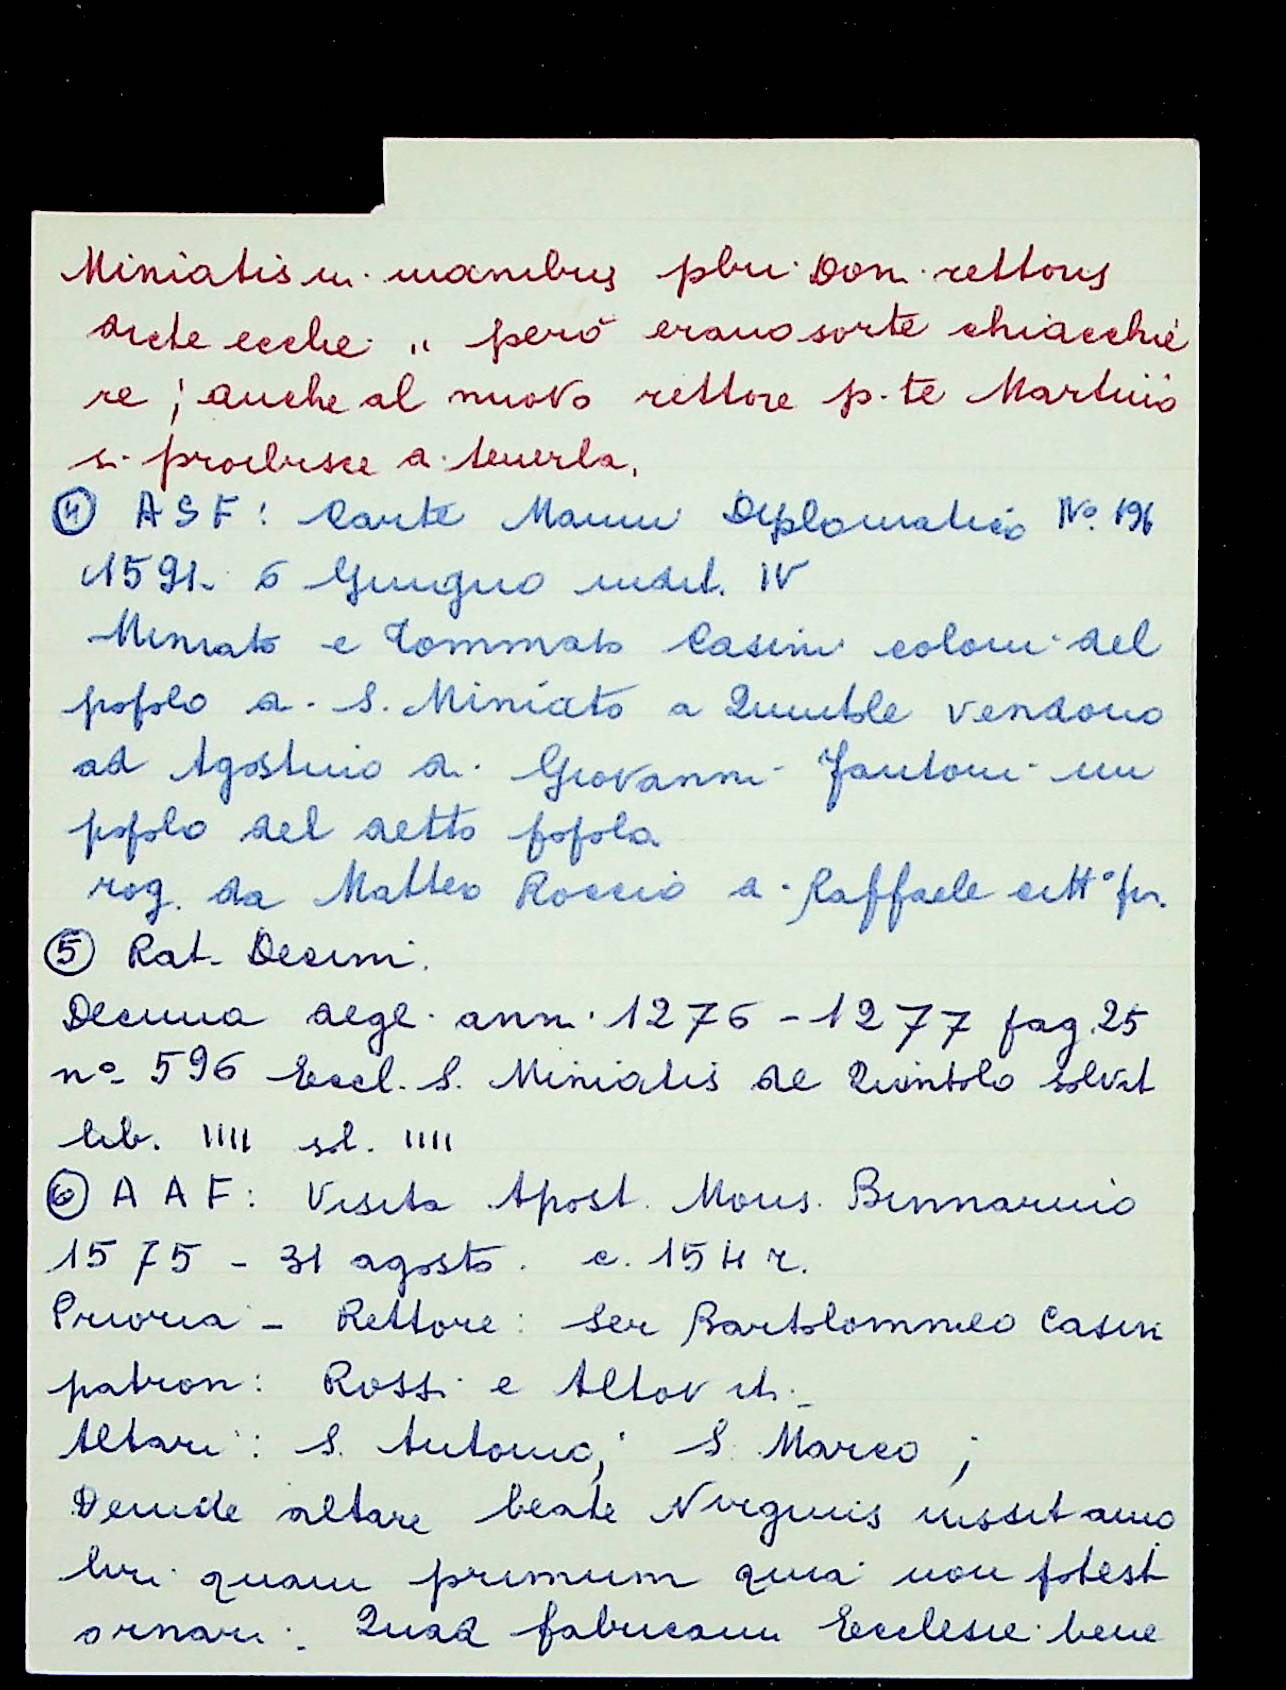 Miniatis in manibus pbri Don rettoris
dicte ecclie „ però erano sorte chiacchie
re; anche al nuovo rettore p.te Martino
si proibisce di tenerla.
④ ASF: Carte Mannu Diplomatico No. 196
1591. 6 Giugno indit. IV
Miniato e Tommaso Casini coloni del
popolo di S. Miniato a Quintole vendono
ad Agostino di Giovanni Fantoni un
popolo del detto popolo
rog. da Matteo Roccio di Raffaele citt° fior.
⑤ Rat. Decim.
Decima degli anni 1276-1277 pag. 25
n°- 596 Eccl. S. Miniatis de Quintolo solvit
lib. IIII sol. IIII
⑥ AAF: Visita Apost. Mons. Binnarino
1575 - 31 agosto. c. 154 r.
Prioria - Rettore: Ser Bartolommeo Casini
patroni: Rossi e Altoviti.
Altari: S. Antonio; S. Marco;
Deinde altare beate Virginis iussit amo
liri quam primum quia non potest
ornari. Quad fabricam Ecclesie bene